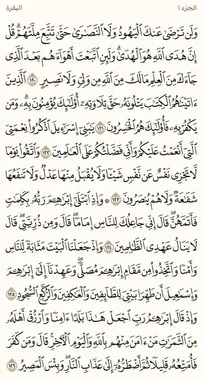 الجزء ١ البقرة
وَلَن تَرْضَىٰ عَنكَ ٱلْيَهُودُ وَلَا ٱلنَّصَٰرَىٰ حَتَّىٰ تَتَّبِعَ مِلَّتَهُمْ قُلْ
إِنَّ هُدَى ٱللَّهِ هُوَ ٱلْهُدَىٰ وَلَئِنِ ٱتَّبَعْتَ أَهْوَآءَهُم بَعْدَ ٱلَّذِى
جَآءَكَ مِنَ ٱلْعِلْمِ مَالَكَ مِنَ ٱللَّهِ مِن وَلِىٍّ وَلَا نَصِيرٍ ١٢٠
ٱلَّذِينَ ءَاتَيْنَٰهُمُ ٱلْكِتَٰبَ يَتْلُونَهُۥ حَقَّ تِلَاوَتِهِۦٓ أُو۟لَٰٓئِكَ يُؤْمِنُونَ بِهِۦ وَمَن
يَكْفُرْ بِهِۦ فَأُو۟لَٰٓئِكَ هُمُ ٱلْخَٰسِرُونَ ١٢١ يَٰبَنِىٓ إِسْرَٰٓءِيلَ ٱذْكُرُوا۟ نِعْمَتِىَ
ٱلَّتِىٓ أَنْعَمْتُ عَلَيْكُمْ وَأَنِّى فَضَّلْتُكُمْ عَلَى ٱلْعَٰلَمِينَ ١٢٢ وَٱتَّقُوا۟ يَوْمًا
لَّا تَجْزِى نَفْسٌ عَن نَّفْسٍ شَيْـًٔا وَلَا يُقْبَلُ مِنْهَا عَدْلٌ وَلَا تَنفَعُهَا
شَفَٰعَةٌ وَلَا هُمْ يُنصَرُونَ ١٢٣ وَإِذِ ٱبْتَلَىٰٓ إِبْرَٰهِـۧمَ رَبُّهُۥ بِكَلِمَٰتٍ
فَأَتَمَّهُنَّ قَالَ إِنِّى جَاعِلُكَ لِلنَّاسِ إِمَامًا قَالَ وَمِن ذُرِّيَّتِى قَالَ
لَا يَنَالُ عَهْدِى ٱلظَّٰلِمِينَ ١٢٤ وَإِذْ جَعَلْنَا ٱلْبَيْتَ مَثَابَةً لِّلنَّاسِ
وَأَمْنًا وَٱتَّخِذُوا۟ مِن مَّقَامِ إِبْرَٰهِـۧمَ مُصَلًّى وَعَهِدْنَآ إِلَىٰٓ إِبْرَٰهِـۧمَ
وَإِسْمَٰعِيلَ أَن طَهِّرَا بَيْتِىَ لِلطَّآئِفِينَ وَٱلْعَٰكِفِينَ وَٱلرُّكَّعِ ٱلسُّجُودِ ١٢٥
وَإِذْ قَالَ إِبْرَٰهِـۧمُ رَبِّ ٱجْعَلْ هَٰذَا بَلَدًا ءَامِنًا وَٱرْزُقْ أَهْلَهُۥ
مِنَ ٱلثَّمَرَٰتِ مَنْ ءَامَنَ مِنْهُم بِٱللَّهِ وَٱلْيَوْمِ ٱلْءَاخِرِ قَالَ وَمَن كَفَرَ
فَأُمَتِّعُهُۥ قَلِيلًا ثُمَّ أَضْطَرُّهُۥٓ إِلَىٰ عَذَابِ ٱلنَّارِ وَبِئْسَ ٱلْمَصِيرُ ١٢٦